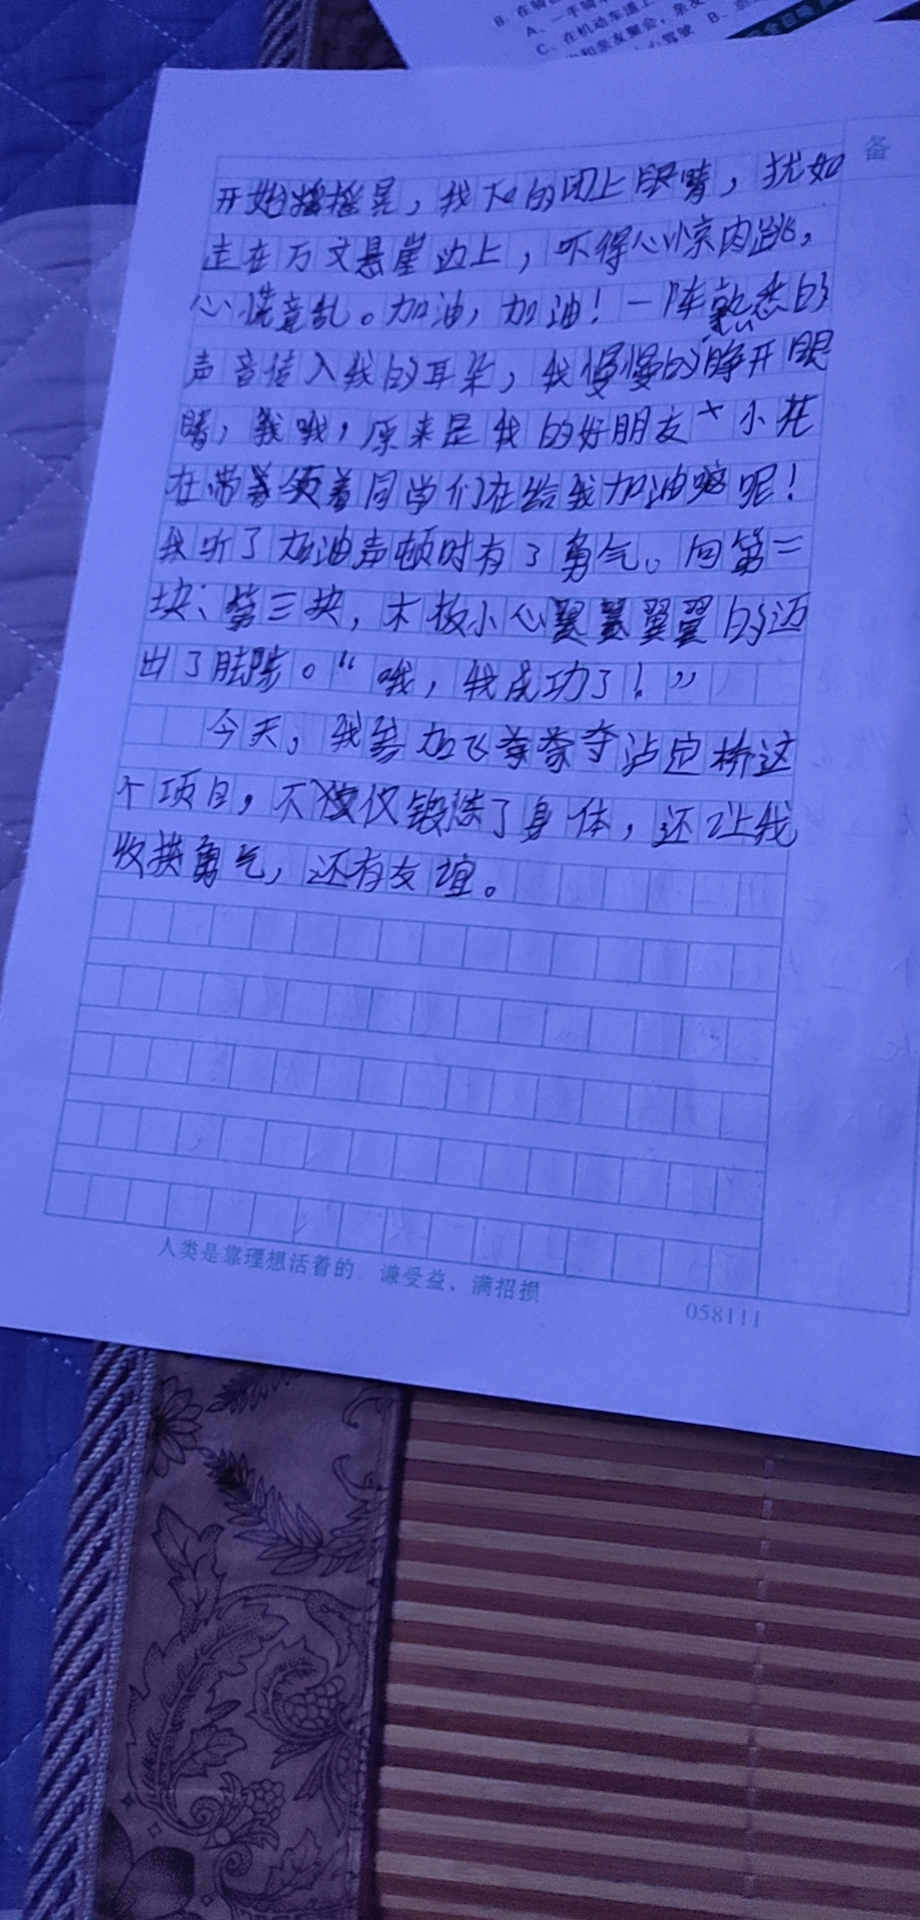 B. 在骑
A. 一手骑
C. 在机动车道上
和亲友聚会，亲友
驾驶 B.
备
开始摇摇晃，我不的闭上眼睛，犹如
走在万丈悬崖边上，吓得心惊肉跳，
心慌意乱。加油，加油！一阵熟悉的
声音传入我的耳朵，我慢慢的睁开眼
睛，我哦，原来是我的好朋友小花
在带着领着同学们在给我加油呢！
我听了加油声顿时有了勇气。向第二
块、第三块，木板小心翼翼的迈
出了脚步。“哦，我成功了！”
今天，我参加飞夺泸定桥这
个项目，不仅锻炼了身体，还让我
收获勇气，还有友谊。
人类是靠理想活着的 谦受益，满招损
058111